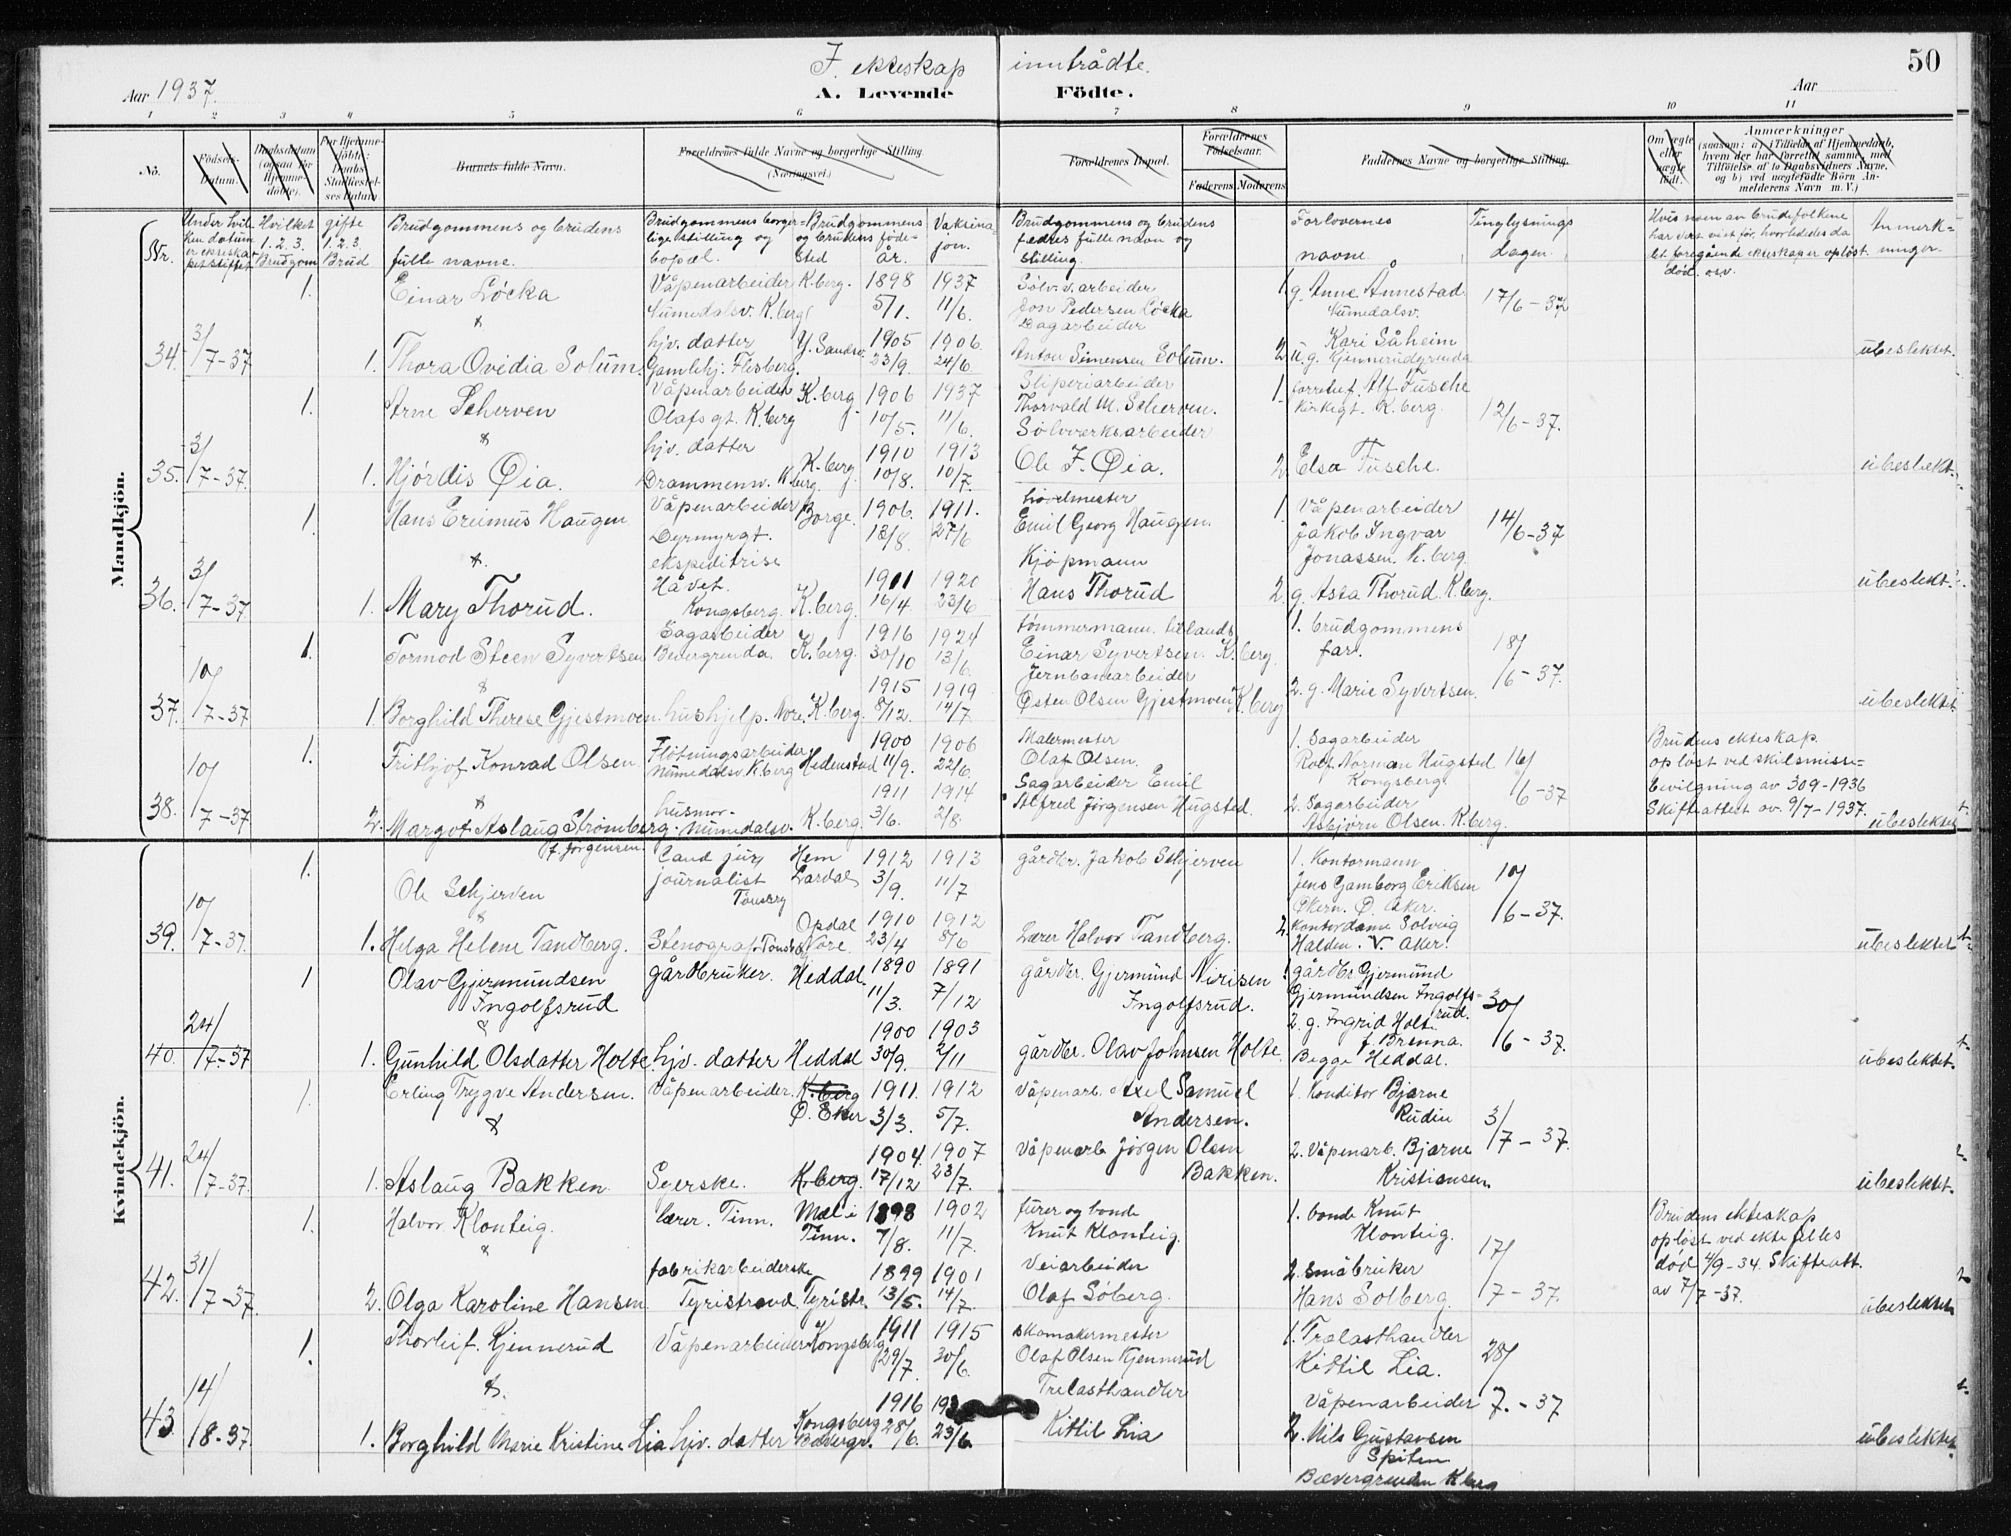 50
I ekteskap inntrådte.
Aar 1937.
A. Levende Födte.
Aar
1 2 3 4 5 6 7 8 9 10 11
No.
Födsels-Datum.
Daabsdatum (ogsaa for Hjemmedöbte).
For Hjemmedöbte: Daabs Stadfæstelses Datum
Barnets fulde Navn.
Forældrenes fulde Navne og borgerlige Stilling. (Næringsvei.)
Forældrenes Bopæl.
Forældrenes Födselsaar.
Faderens. Moderens.
Faddernes Navne og borgerlige Stilling.
Om ægte eller uægte födt.
Anmærkninger
(saasom: a) i Tilfælde af Hjemmedaab, hvem der har forrettet samme, med Tilföielse af to Daabsvidners Navne, og b) ved uægtefödte Börn Anmelderens Navn m. V.)
Nr.
Under hvilken datum er ekteskapet stiftet
Hvilket 1. 2. 3. Brudgom
gifte 1. 2. 3. Brud
Brudgommens og brudens fulle navne.
Brudgommens borgerlige stilling og bopæl.
Brudgommens og brudens fødested år.
Vaksinasjon.
Brudgommens og brudens fædres fulle navn og stilling.
Forlovernes navne
Tinglysnings dagen
Hvis noen av brudefolkene har vært vist før, hvorledes da det foregående ekteskap er opløst død. osv.
Anmerkninger
Mandkjön.
1. Einar Løcka Våpenarbeider K.berg. 1898 1937 Sølvv.arbeider 1. g. Anne Annestad 17/6-37
Numedalsv. K.berg 5/1. 11/6. Jon Pedersen Løcka Numedalsv.
&
34. 3/7-37 1. Thora Ovidia Solum. hjv. datter Y. Sandsv. 1905 1906 Sagarbeider Kari Såheim
Gamlehj. Flesberg. 23/9. 24/6. Anton Simensen Solum. 2. u.g. Kjennerudgrenda ubeslektet.
1. Arne Scherven Våpenarbeider K.berg 1906 1937 Sliperiarbeider 1. forrettef. Alf Fusche
Olafsgt. K.berg 10/5. 11/6. Thorvald M. Scherven. Kirkegt. K.berg. 12/6-37.
&
35. 3/7-37. 1. Hjørdis Øia. hjv. datter K.berg 1910 1913 Sølvverksarbeider
Drammensv. K.berg. 10/8. 10/7. Ole J. Øia. 2. Elsa Fusche. ubeslekt.
1. Hans Ereimus Haugen Våpenarbeider Borge. 1906. 1911. høvelmester 1. Våpenarbeider
Dyrmyrgt. 18/8. 27/6 Emil Georg Haugen. Jakob Ingvar 14/6-37
&. ekspeditrise Kjøpmann Jonassen. K.berg
36. 3/7-37 1. Mary Thorud. Håvet. Kongsberg. K.berg. 1911 1920
16/4. 23/6 Hans Thorud 2. g. Asta Thorud K.berg. ubeslekt.
1. Tormod Steen Syvertsen Sagarbeider 1916 1924 tømmermann. tillands 1. brudgommens
Bevergrenda. K.berg. 30/10 13/6. Einar Syvertsen. K.berg. far. 18/6-37.
&
37. 10/7-37 1. Borghild Therese Gjestmoen. hushjelp. Nore. K.berg. 1915 1919 Jernbanearbeider
8/12. 14/7 Østen Olsen Gjestmoen K.berg 2. g. Marie Syvertsen. ubeslektet.
1. Frithjof Konrad Olsen Fløtningsarbeider 1900 1906 Malermester 1. Sagarbeider
Numedalsv. K.berg Hedenstad 11/9. 22/6. Olaf Olsen. Rolf Norman Hugsted Kongsberg. 16/6-37
&
38. 10/7-37 2. Margot Aslaug Strømberg f. Jørgensen. husmor. Numedalsv. K.berg. 1911 1914 Sagarbeider Emil
3/6. 2/8. Alfred Jørgensen Hugsted. 2. Sagarbeider Asbjørn Olsen. K.berg.
Brudens ekteskap. opløst ved skilsmisse-bevilgning av 30 9-1936 Skifteattest av. 9/7-1937. ubeslektet
Kvindekjön.
1. Ole Schjerven Cand jur, journalist Tønsberg Hem Lardal 1912 1913 gårdbr. Jakob Schjerven 1. Kontormann
3/9. 11/7 Jens Gamborg Eriksen Økern. Ø. Aker. 10/6-37.
&
39. 10/7-37. 1. Helga Helene Tandberg. Stenograf. Tønsberg Opdal Nore 1910 1912
23/4 8/6 Lærer Halvor Tandberg. 2. Kontordame Solveig Halden. V. Aker. ubeslektet
1 Olav Gjermundsen Ingolfsrud gårdbruker. Heddal. 1890 1891 gårdbr. Gjermund Nirisen Ingolfsrud.
11/3. 7/12 1. gårdbr. Gjermund Gjermundsen Ingolfsrud. 30/6-37.
&
40. 24/7-37 1. Gunhild Olsdatter Holte. hjv. datter Heddal 1900 1903
30/9. 2/11 gårdbr. Olav Johnsen Holte. 2. g. Ingrid Holt f. Brenna. Begge Heddal. ubeslektet.
1. Erling Trygve Andersen. Våpenarbeider. K.berg Ø. Eker 1911. 1912 Våpenarb. Axel Samuel Andersen.
3/3. 5/7. 1. Konditor Bjarne Rudin 3/7-37.
&
41. 24/7-37. 1. Aslaug Bakken Syerske. K.berg. 1904. 1907 Våpenarb Jørgen Olsen Bakken.
17/12 23/7. 2. Våpenarb. Bjarne Kristiansen ubeslektet.
1. Halvor Klonteig. lærer. Tinn. Mæl i Tinn. 1898 1902 furer og bonde 1. bonde Knut Klonteig.
7/8. 11/7. Knut Klonteig 17/7-37.
&
42. 31/7-37. 2. Olga Karoline Hansen fabrikarbeiderske Tyristrand. Tyristr. 1899 1901 Veiarbeider 2. Småbruker
13/5. 14/7. Olaf Søberg. Hans Solberg.
Brudens ekteskap opløst ved ektefelles død 4/9-34. Skifteatt. av 7/7-37. ubeslektet
1. Thorleif Kjennerud Våpenarbeider Kongsberg 1911 1915 skomakermester 1. Trelasthandler
29/7. 30/6. Olaf Olsen Kjennerud Kittil Lia. 28/7.-37
&.
43. 14/8-37. 1. Borghild Marie Kristine Lia hjv. datter Kongsberg Bævergr. 1916 Trelasthandler Våpenarbeider
28/6. 23/6. Kittil Lia 2. Nils Gustavsen Spiten Bævergrenden K.berg ubeslektet